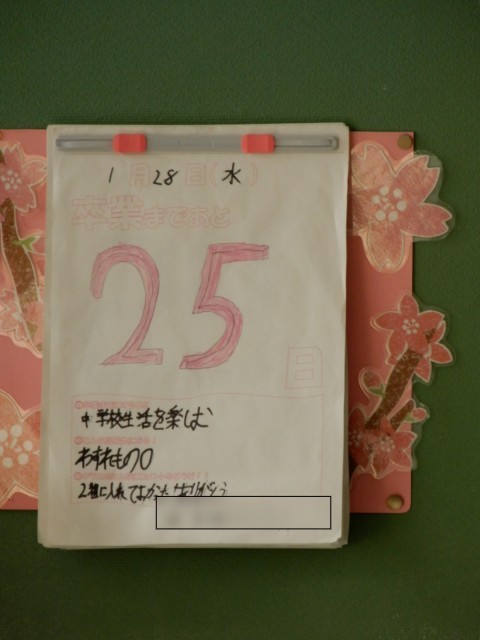 1月28日(水)
卒業まであと
25
日
中学校生活を楽しむ
わすれもの0
2組に入れてよかった ありがとう